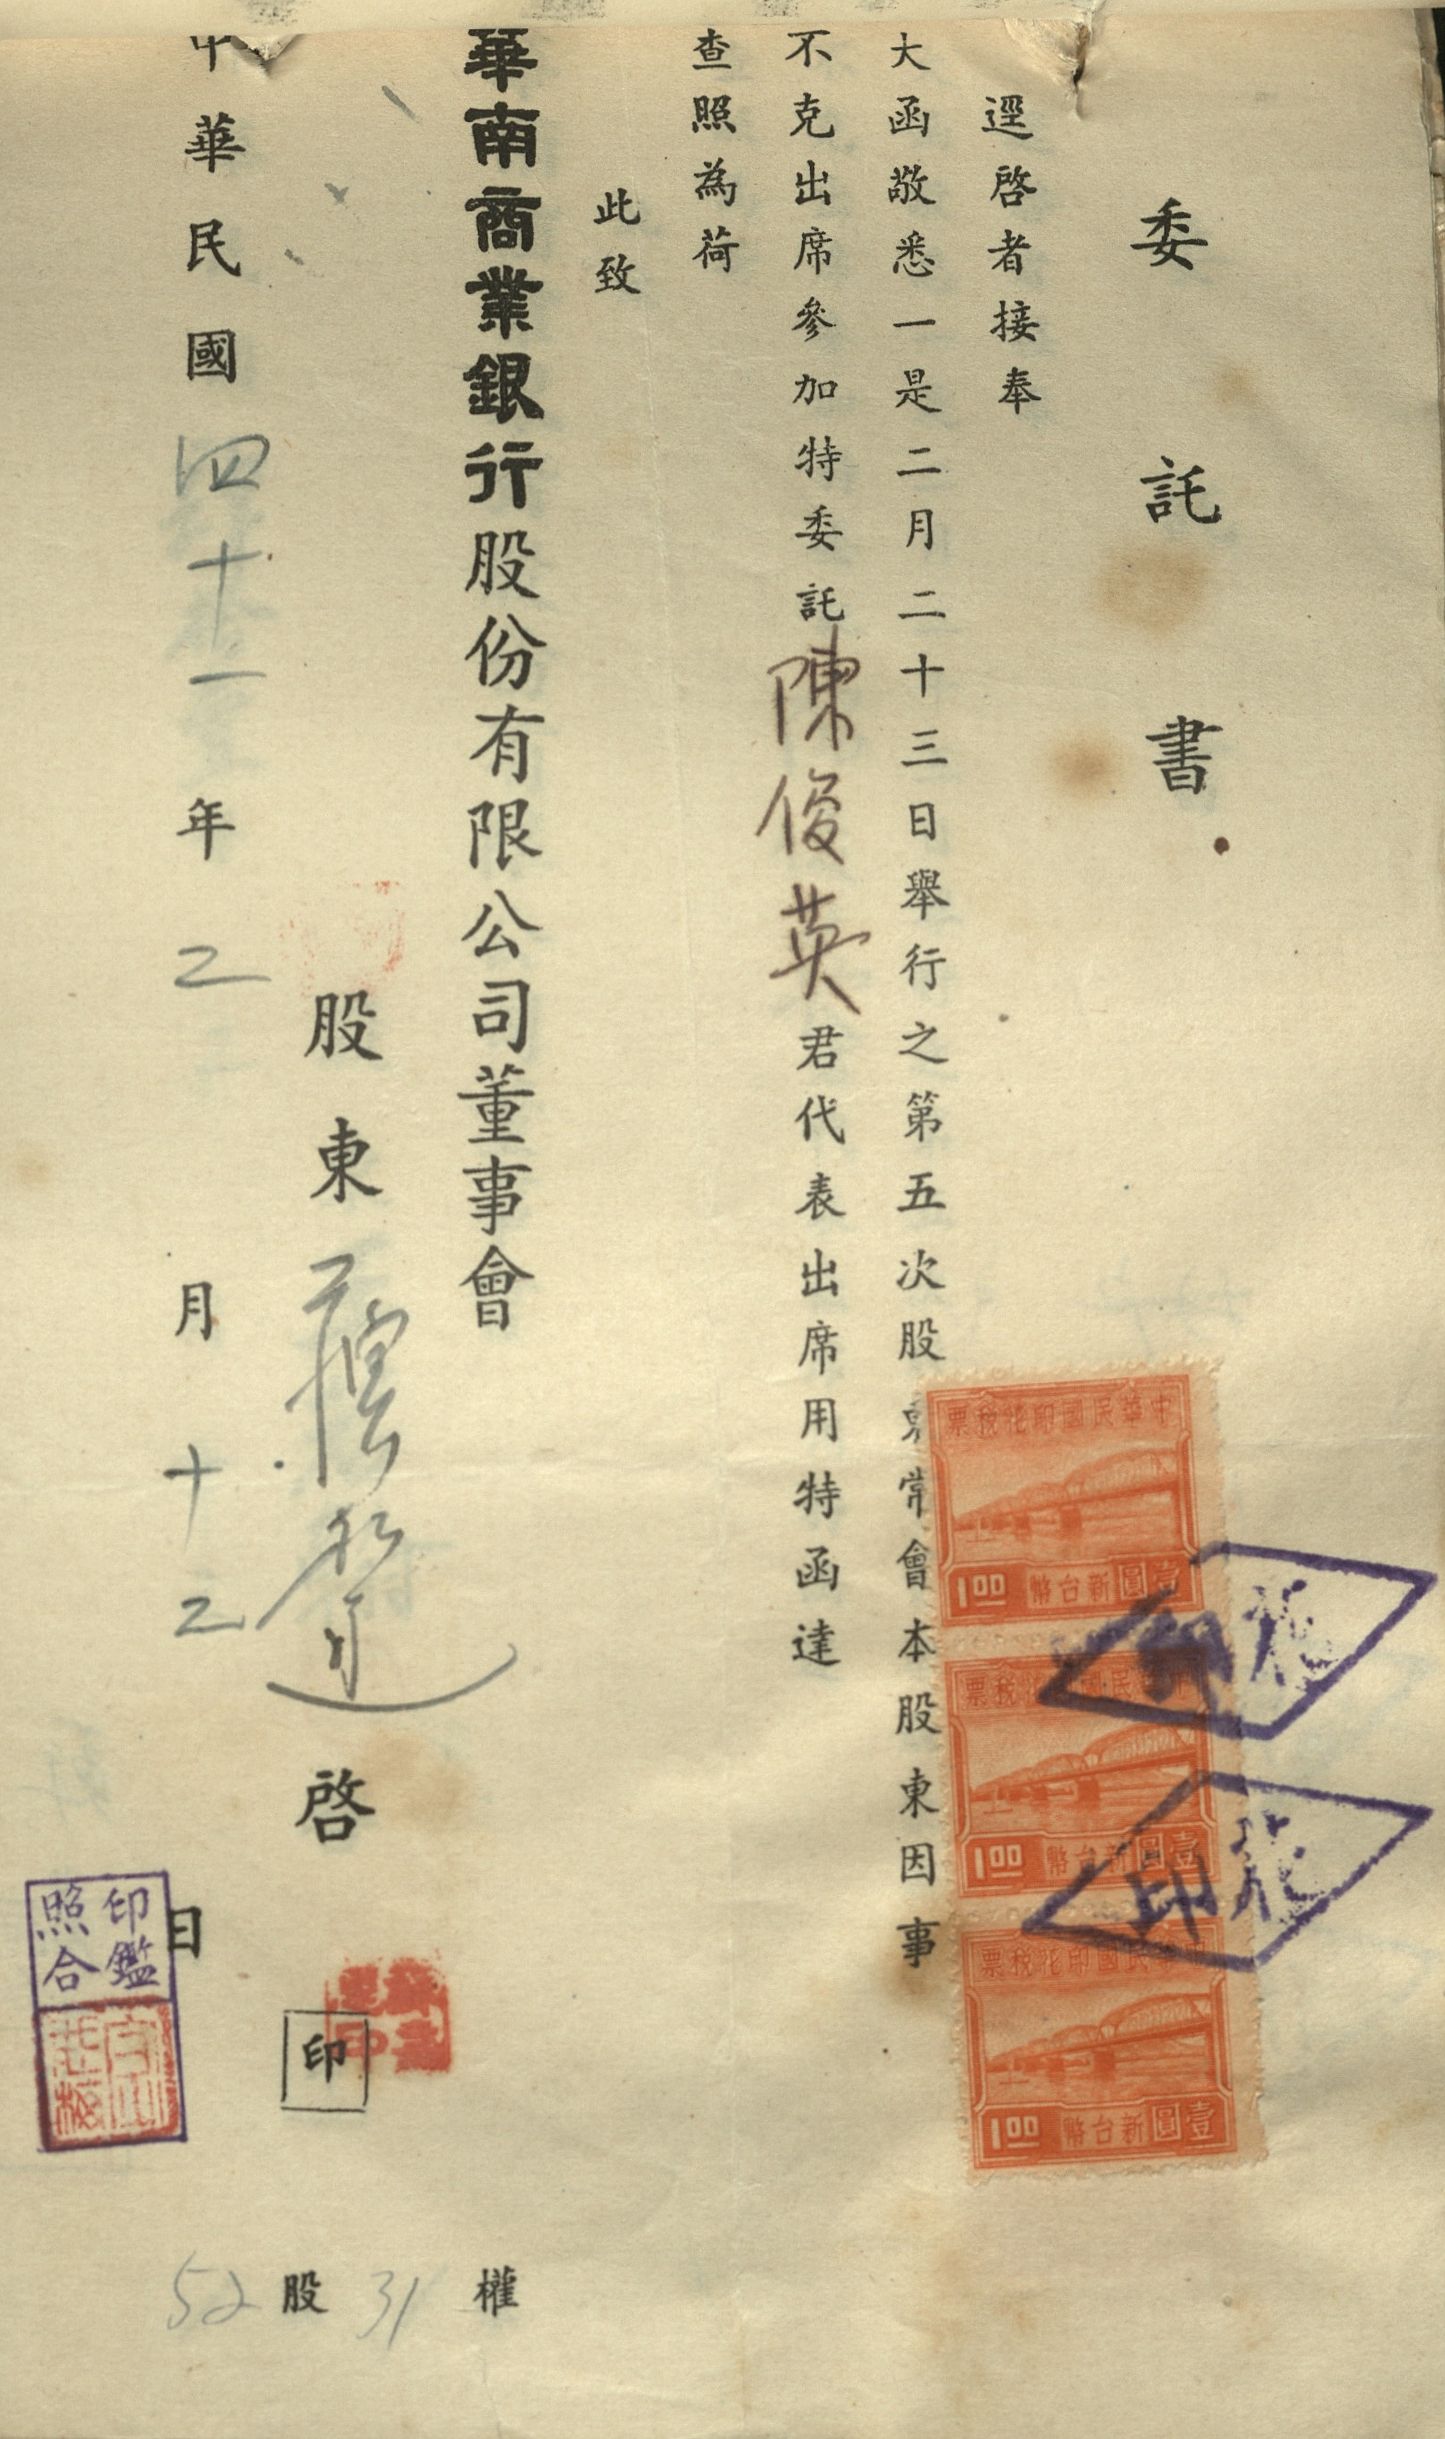 委託書
逕啓者接奉
大函敬悉一是二月二十三日舉行之第五次股東常會本股東因事
不克出席參加特委託陳俊英君代表出席用特函達
查照為荷
此致
華南商業銀行股份有限公司董事會
股東 啓 印
中華民國四十一年二月十二日
印鑑
照合
52股31權
中華民國印花稅票
壹圓新台幣
1.00
中華民國印花稅票
壹圓新台幣
1.00
中華民國印花稅票
壹圓新台幣
1.00
花印
花印